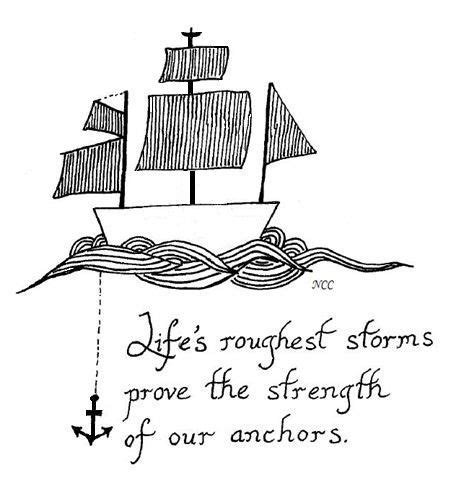 NCC
Life's roughest storms
prove the strength
of our anchors.